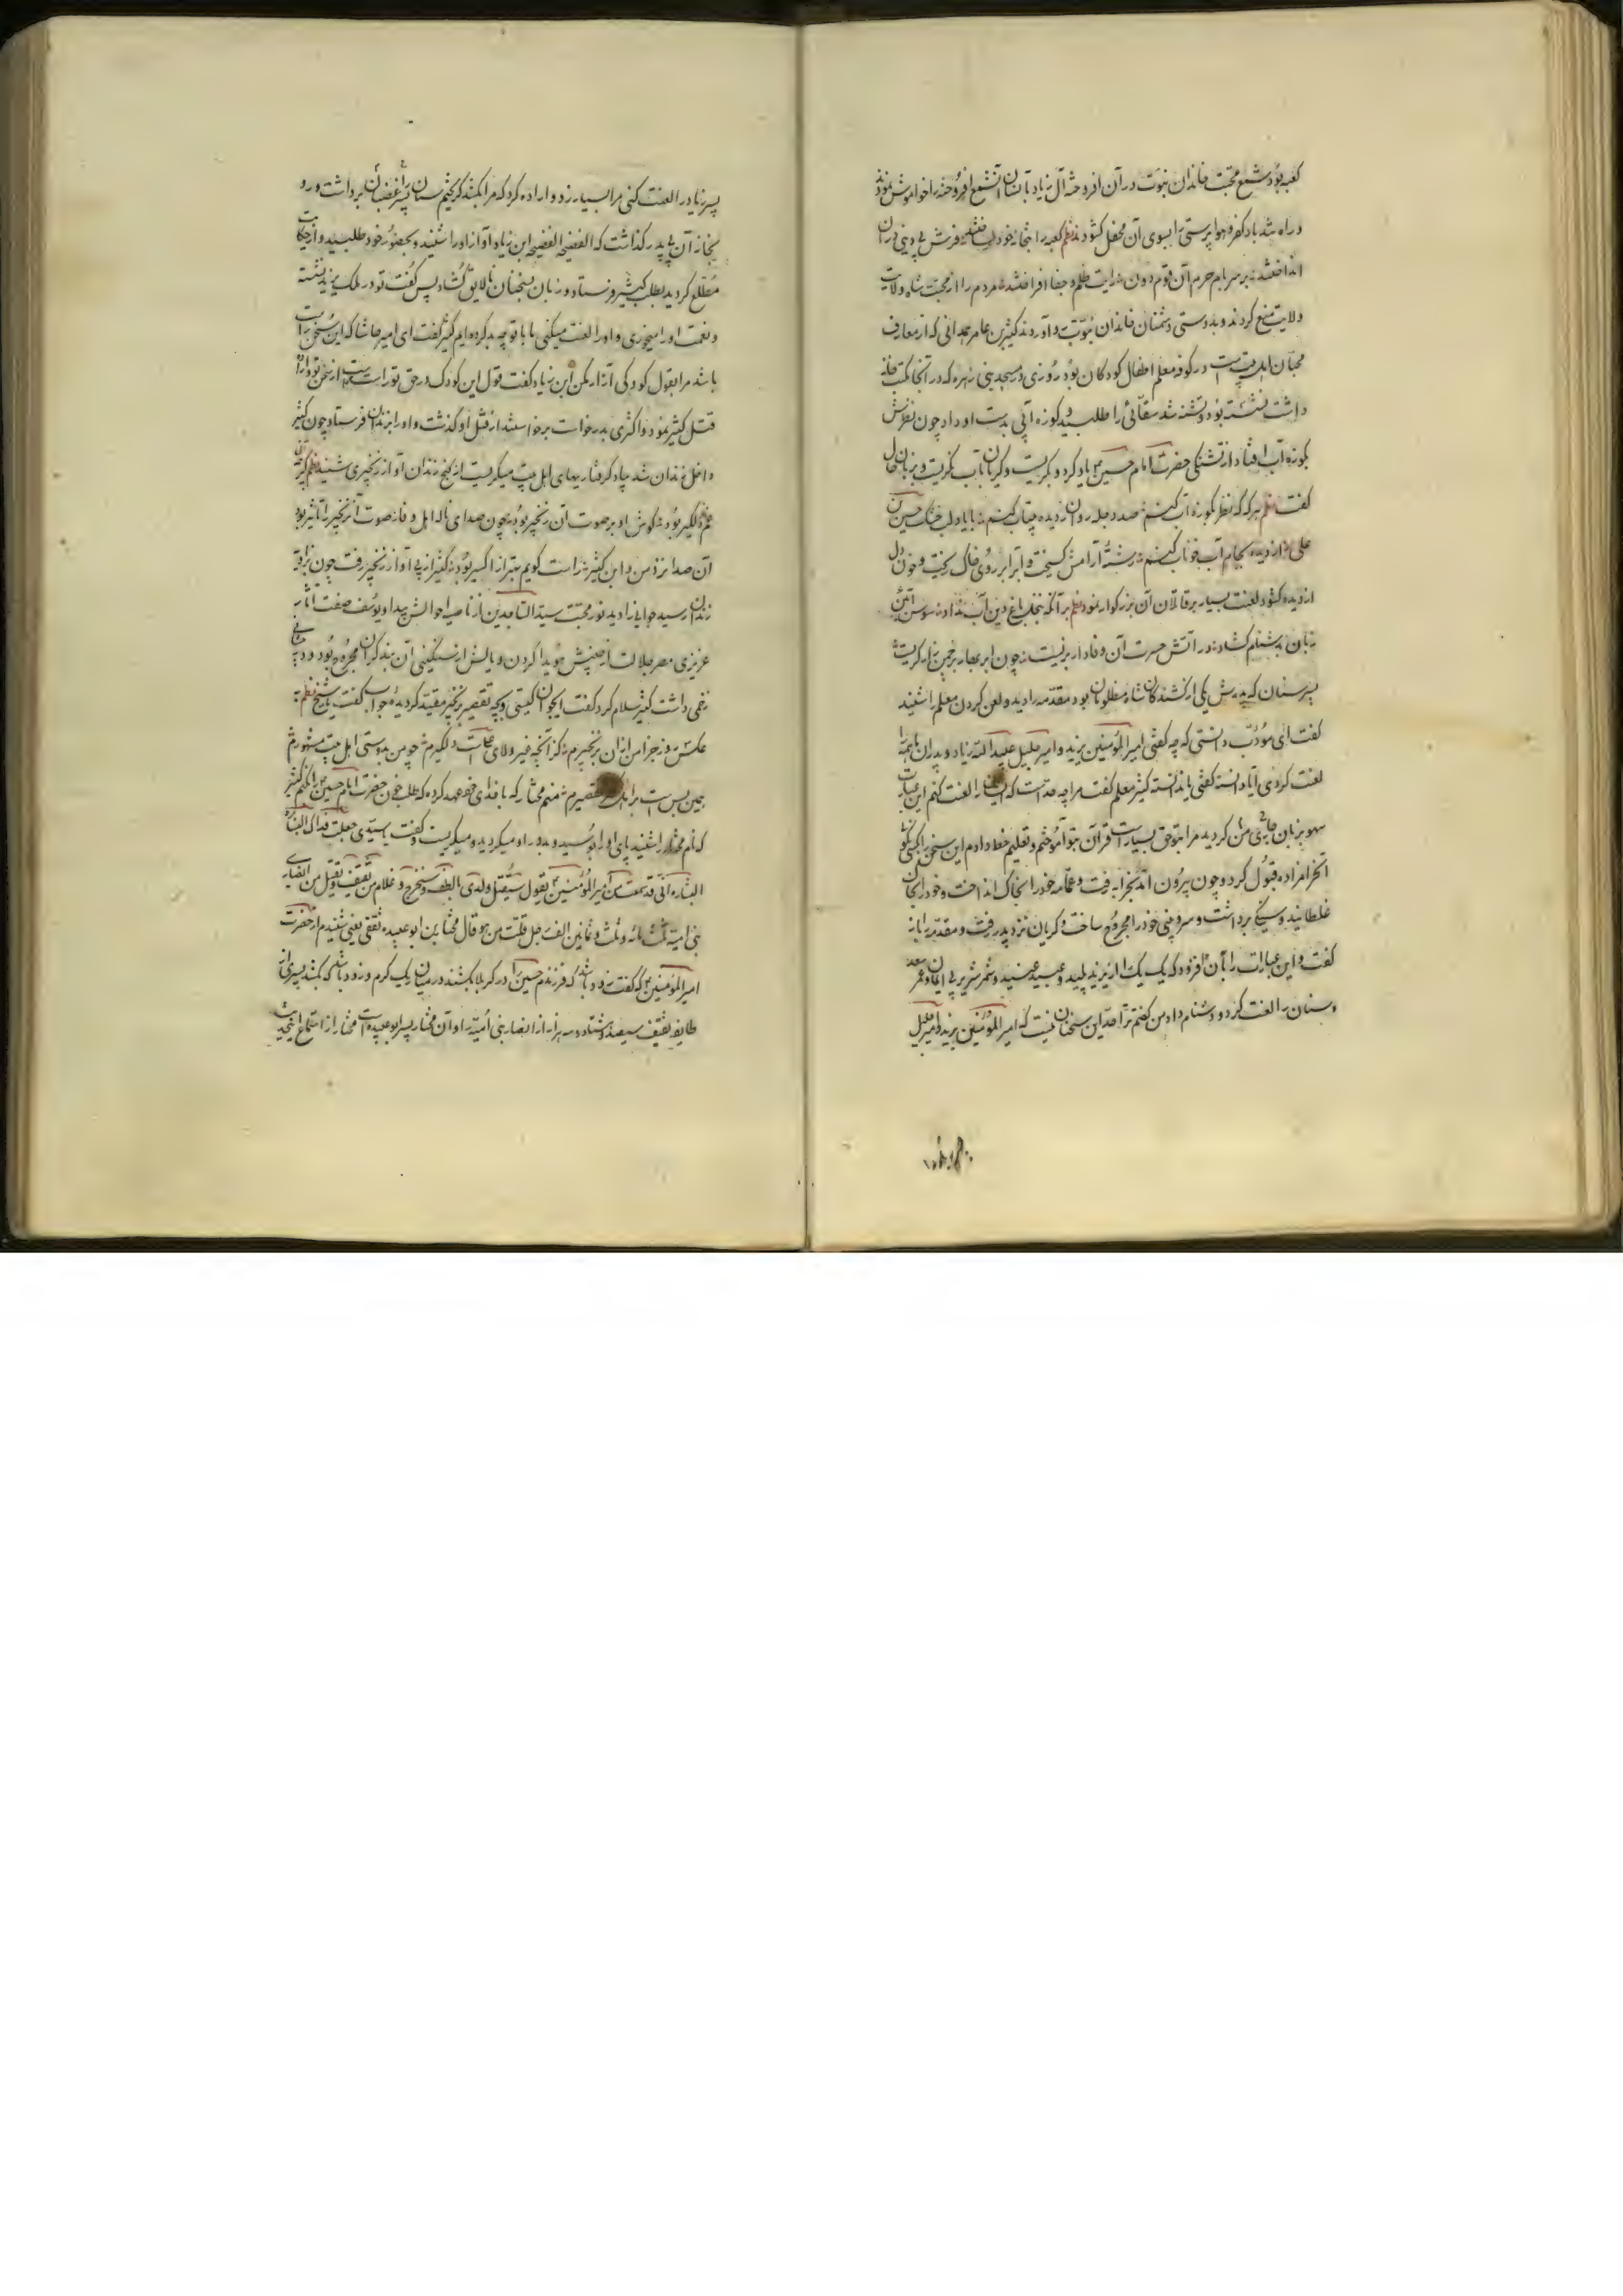 کعبه بود شمع محبت خاندان نبوت در آن افروخته آل زیاد بآستان آتشمع افروخته را خواموش نمودند
در راه تند باد کفر و هوا پرستی را بسوی آن محفل کشودند نظم کعبه را بتخانه خود ساختند فرش بی دینی در آن
انداختند بر سر بام حرم آن قوم دون رایت ظلم و جفا افراختند مردم را از محبت شاه ولایت
ولایت منع کردند و بدوستی دشمنان خاندان نبوت وا آوردند کثیر بن عامر همدانی که از معارف
محبان اهل بیت است در کوفه معلم اطفال کودکان بود روزی در مسجد بنی زهره که در آنجا مکتب خانه
داشت نشسته بود و تشنه شد سقائی را طلبید و کوزه آبی بدست او داد چون نظرش
بکوزه آب افتاد از تشنگی حضرت امام حسین یاد کرد و بگریست و گریان بآب نگریست و بزبان حال
گفت نظم هر که که نظر بکوزه آب کنم صد دجله روان ز دیده بیتاب کنم با یاد لب خشک حسین
علی از دیده بجام آب خوناب کنم رشته آرامش گسیخت و آبرا بر روی خاک ریخت و خون دل
از دیده کشود لعنت بسیار بر قاتلان آن بزرگوار نمود نظم بر آنکه بنخل باغ دین آب نداد سوسن آئین
زبان بدشنام کشاد در آتش حسرت آن وفادار بزیست چون ابر بهار بر چمن زار گریست
پسر سنان که پدرش یکی از کشندگان شاه مظلومان بود مقدمه را دید و لعن کردن معلم را شنید
گفت ای مؤدب دانستی که چه گفتی امیر المؤمنین یزید و امیر جلیل عبید الله زیاد و پدران ما همه را
لعنت کردی آیا دانسته گفتی یا ندانسته کثیر معلم گفت مرا چه حد است که ایشان را لعنت کنم این عبارت
سهو بزبان جاری من گردید مرا بتو حق بسیار است قرآن بتو آموختم و تعلیم خط دادم این سخن را بکسی نگو
آنحرامزاده قبول کرد و چون بیرون آمد بخرابه رفت و عمامه خود را بخاک انداخت و خود را بخاک
غلطانید و سنگی برداشت و سر و بینی خود را مجروح ساخت و گریان نزد پدر رفت و مقدمه را باز
گفت و این عبارات را بآن افزود که یک یک را از یزید پلید و عبید عنید و شمر شریر بی ایمان و عمر سعد
و سنان را لعنت کرد و دشنام داد من گفتم ترا حد این سخنان نیست که امیر المؤمنین یزید و امیر جلیل
پسر زیاد را لعنت کنی مرا بسیار زد و اراده کرد که مرا بکشد گریختم سنان پر غضبان برداشت و رو
بخانه آن بی پدر گذاشت که الفضیحه الفضیحه ابن زیاد آواز او را شنید و بحضور خود طلبید و از حکایت
مطلع گردید بطلب کثیر فرستاد و زبان بسخنان نالایق گشاد پس گفت تو در ملک یزید نشسته
و نعمت او را میخوری و او را لعنت میکنی ما با تو چه بد کرده ایم کثیر گفت ای امیر حاشا که این سخن راست
باشد مرا بقول کودکی آزار مکن ابن زیاد گفت قول این کودک در حق تو راست است
قتل کثیر نمود و اکثری بدرخواست برخواستند از قتل او گذشت و او را بزندان فرستاد چون کثیر
داخل زندان شد بیاد گرفتاریهای اهل بیت میگریست از کنج زندان آواز زنجیری شنید نظم
غم دلگیر بود گوش او بر صوت آن زنجیر بود چون صدای ناله اهل وفا صوت آنزنجیر با تاثیر بود
آن صدا نزد من و ابن کثیر راست گویم بهتر از اکسیر بود کثیر از پی آواز زنجیر رفت چون نزد
زندان رسید جوانی را دید نور محبت سید الساجدین از ناصیه احوالش پیدا و یوسف صفت آثار
عزیزی مصر جلالت از جبینش هویدا گردن و پایش از سنگینی آن بند گران مجروح بود و در
زخمی داشت کثیر سلام کرد گفت ایجوان کیستی و بچه تقصیر بزنجیر مقید گردیده جواب گفت یا شیخ نظم
همین بس است برای که تقصیرم منم مختار که با خدای خود عهد کرده که طلب خون حضرت امام حسین را کنم کثیر
که نام مختار را شنید پای او را بوسید و بدور او میگردید و میگریست و گفت یا سیدی جعلت فداک البشاره
البشاره انی قد سمعت من امیر المؤمنین یقول سیقتل ولدی بالطف و سیخرج غلام من ثقیف و یقتل من انصار
بنی امیه ثلث مائه و ثلث و ثمانین الف رجل قلت من هو قال مختار بن ابو عبیده ثقفی یعنی شنیدم از حضرت
امیر المؤمنین که گفت زود باشد که فرزندم حسین را در کربلا بکشند در میان
طایفه ثقیف سیصد و هشتاد و سه هزار از انصار بنی امیه را و آن مختار پسر ابو عبیده است مختار از استماع این حدیث